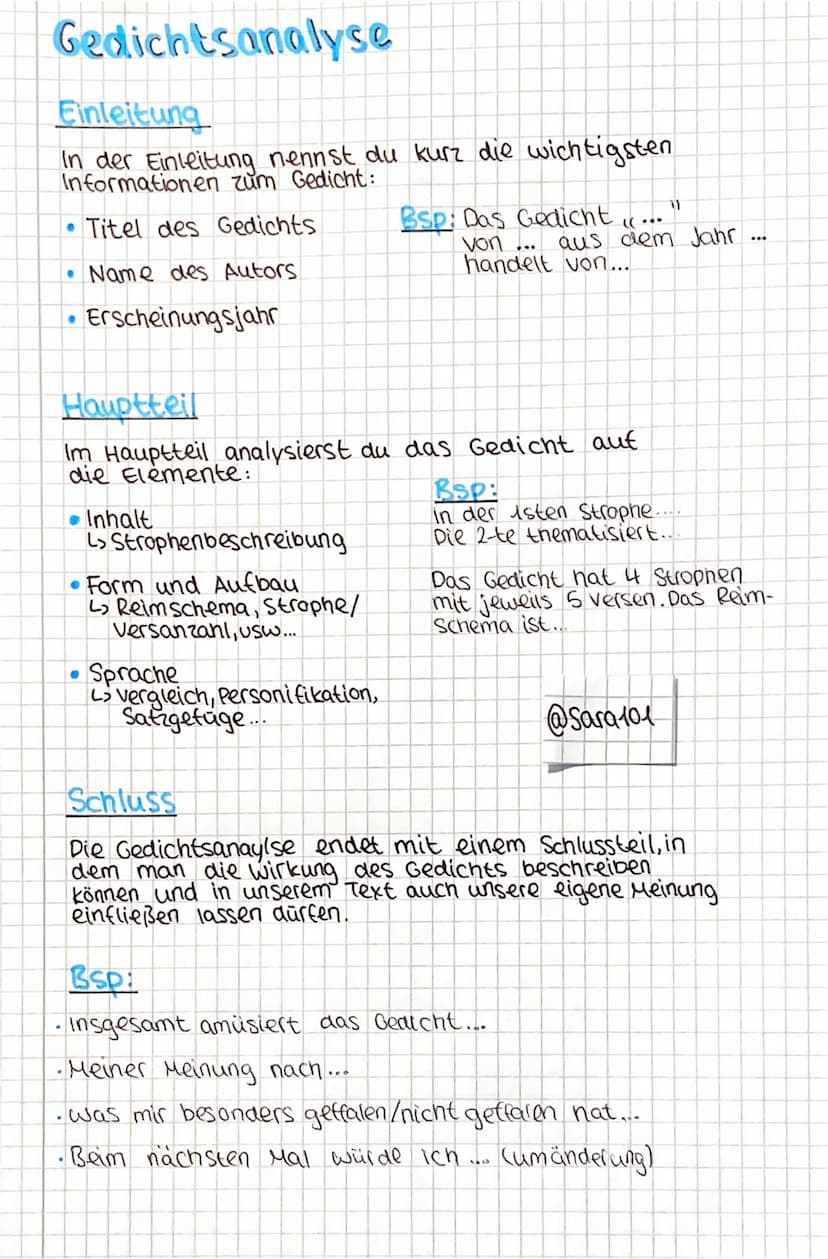 Gedichtsanalyse
Einleitung
In der Einleitung nennst du kurz die wichtigsten
Informationen zum Gedicht:
• Titel des Gedichts
• Name des Autors
• Erscheinungsjahr
Bsp: Das Gedicht „..."
von ... aus dem Jahr ...
handelt von...
Hauptteil
Im Hauptteil analysierst du das Gedicht auf
die Elemente:
• Inhalt
↳ Strophenbeschreibung
Bsp:
in der 1sten Strophe....
Die 2-te thematisiert...
• Form und Aufbau
↳ Reimschema, Strophe/
Versanzahl, usw...
Das Gedicht hat 4 Strophen
mit jeweils 5 versen. Das Reim-
schema ist...
• Sprache
↳ vergleich, Personifikation,
Satzgefüge...
@Sara101
Schluss
Die Gedichtsanaylse endet mit einem Schlussteil, in
dem man die Wirkung des Gedichts beschreiben
können und in unserem Text auch unsere eigene Meinung
einfließen lassen dürfen.
Bsp:
· Insgesamt amüsiert das Gedicht...
· Meiner Meinung nach...
· was mir besonders geffalen/nicht geffalen hat...
· Beim nächsten Mal würde ich ... (umänderung)